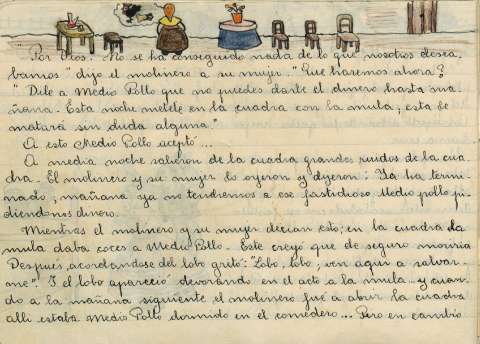 "Por Dios. No se ha conseguido nada de lo que nosotros desea-
bamos" dijo el molinero a su mujer. "Que haremos ahora?
"Dile a Medio Pollo que no puedes darle el dinero hasta ma-
ñana. Esta noche metele en la cuadra con la mula, esta le
matará sin duda alguna."
A esto Medio Pollo aceptó...
A media noche salieron de la cuadra grandes ruidos de la cua-
dra. El molinero y su mujer lo oyeron y dijeron: Ya ha termi-
nado; mañana ya no tendremos a ese fastidioso Medio pollo pi-
diendonos dinero.
Mientras el molinero y su mujer decian esto; en la cuadra la
mula daba coces a Medio Pollo. Este creyó que de seguro moriria
Despues, acordandose del lobo gritó: "Lobo, lobo; ven aqui a salvar-
me". Y el lobo apareció devorando en el acto a la mula. Y cuan-
do a la mañana siguiente el molinero fué a abrir la cuadra
alli estaba Medio Pollo dormido en el comedero... Pero en cambio